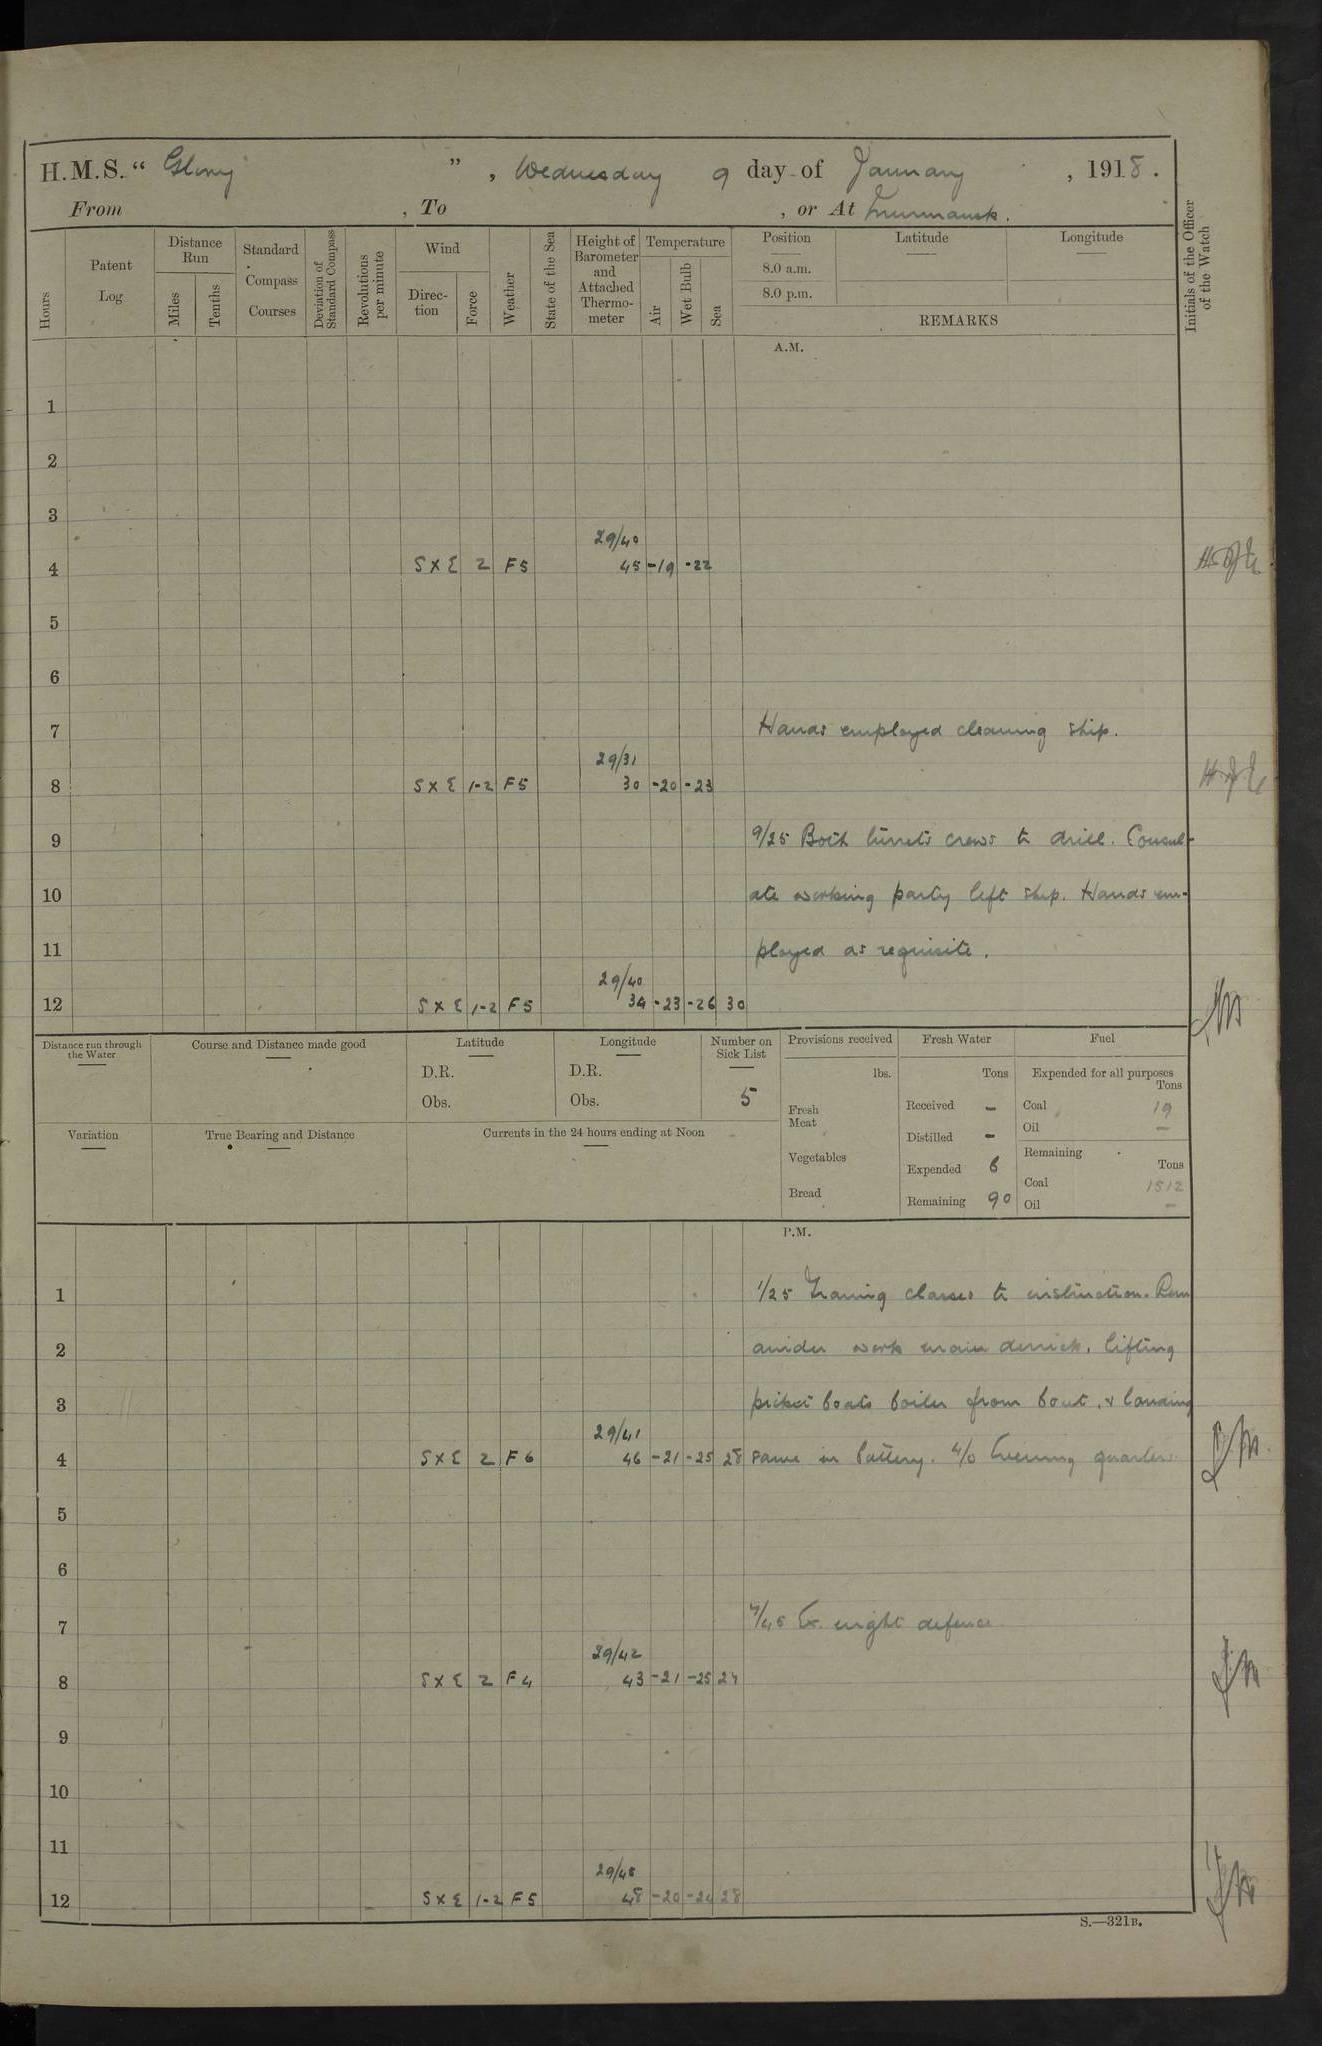 H.M.S. " Glory " , Wednesday 9 day of January , 1918 .
From , To , or At Murmansk.
Hours
Patent Log
Distance Run
Miles
Tenths
Standard Compass Courses
Deviation of Standard Compass
Revolutions per minute
Wind
Direc-tion
Force
Weather
State of the Sea
Height of Barometer and Attached Thermo-meter
Temperature
Air
Wet Bulb
Sea
Position
8.0 a.m.
8.0 p.m.
Latitude
Longitude
REMARKS
Initials of the Officer of the Watch
A.M.
1
2
3
29/40
4 S X E 2 F 5 45 -19 -22
5
6
7 Hands employed cleaning ship.
29/31
8 S X E 1-2 F 5 30 -20 -23
9 9/25 Both turrets crews to drill. Consul-
10 ate working party left ship. Hands em-
11 ployed as requisite.
29/40
12 S X E 1-2 F 5 34 -23 -26 30
Distance run through the Water
Course and Distance made good
Latitude
D.R.
Obs.
Longitude
D.R.
Obs.
Number on Sick List
5
Variation
True Bearing and Distance
Currents in the 24 hours ending at Noon
Provisions received
lbs.
Fresh Meat
Vegetables
Bread
Fresh Water
Tons
Received -
Distilled -
Expended 6
Remaining 90
Fuel
Expended for all purposes
Tons
Coal 19
Oil -
Remaining
Tons
Coal 1512
Oil -
P.M.
1 1/25 Training classes to instruction. Rem
2 ainder work main derrick, lifting
3 picket boats boiler from boat, & landing
29/41
4 S X E 2 F 6 46 -21 -25 28 same in battery. 4/0 Evening quarters
5
6
7 7/45 Ex. night defence
29/42
8 S X E 2 F 4 43 -21 -25 24
9
10
11
29/45
12 S X E 1-2 F 5 48 -20 -24 28
S.—321B.